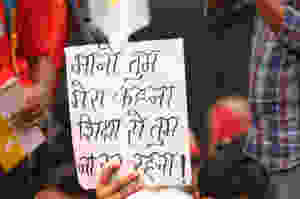 मानो तुम
मेरा कहना
शिक्षा से तुम
रहना!